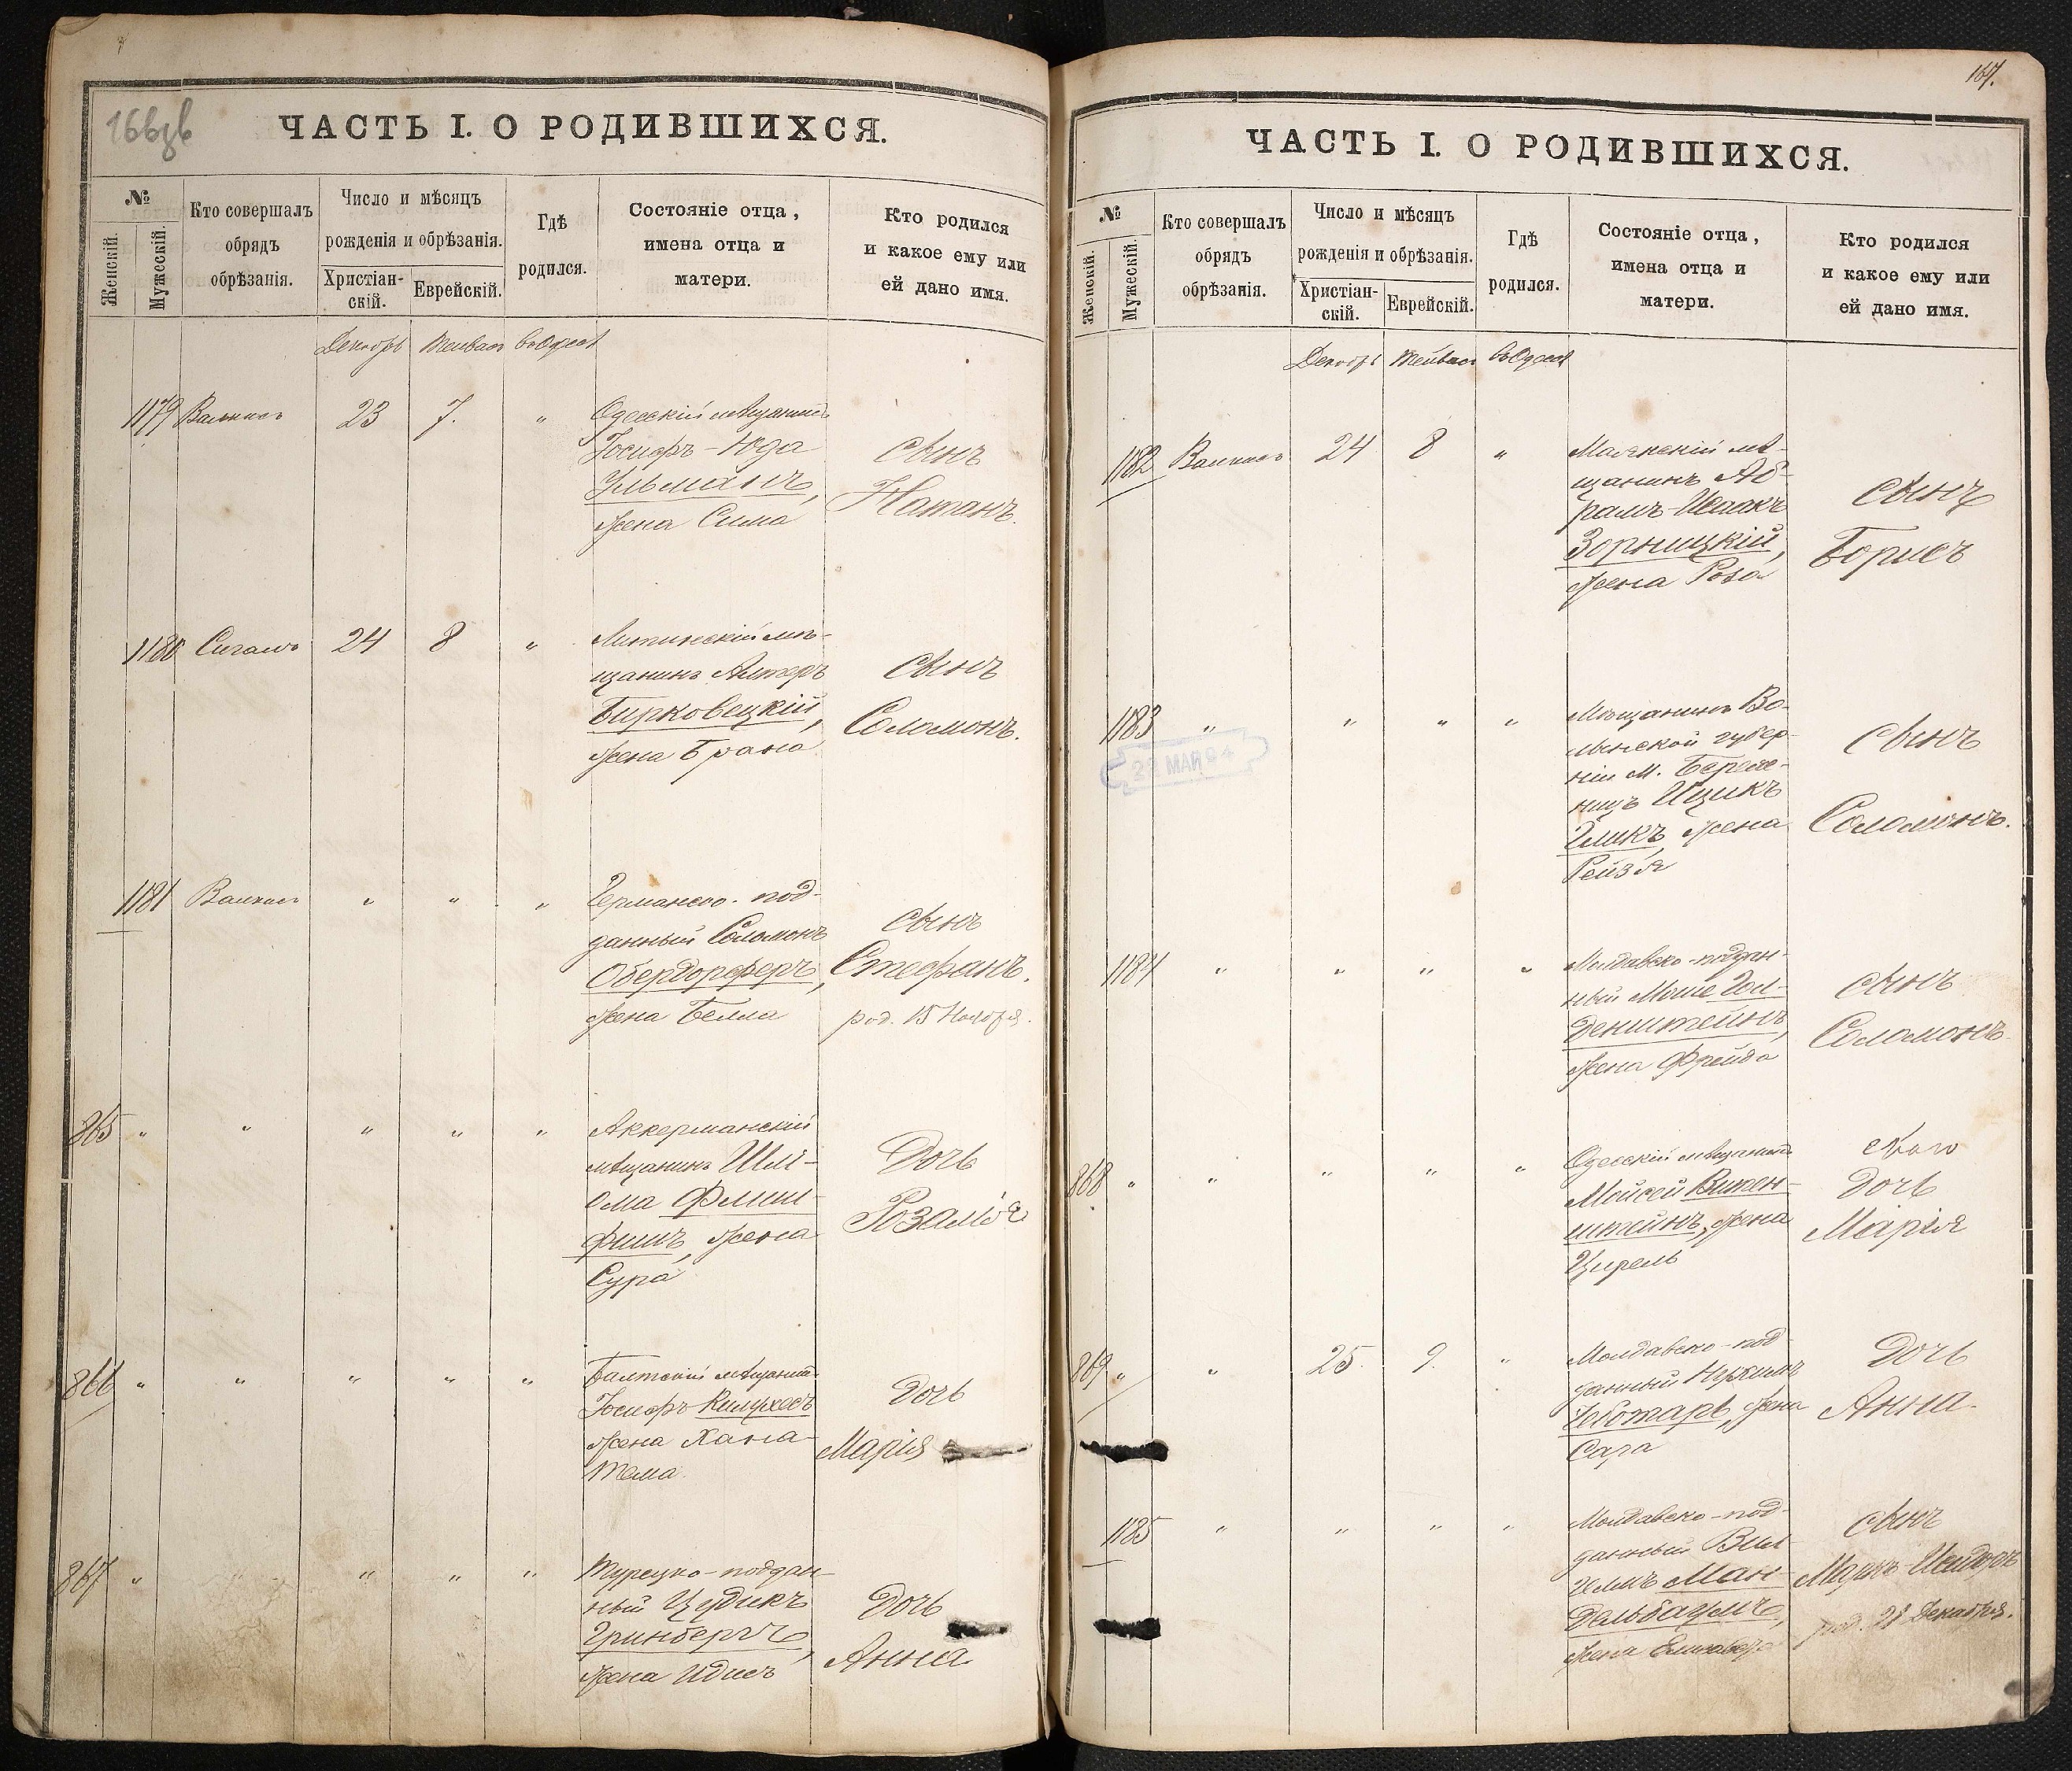 166 зв
ЧАСТЬ I. О РОДИВШИХСЯ.
№
Женскій.
Мужескій.
Кто совершалъ
обрядъ
обрѣзанія.
Число и мѣсяцъ
рожденія и обрѣзанія.
Христіан-
скій.
Еврейскій.
Гдѣ
родился.
Состояніе отца,
имена отца и
матери.
Кто родился
и какое ему или
ей дано имя.
Декабрь Тейвасъ въ Одессѣ
1179 23 7. "
Одесскій мѣщанинъ
Іосифъ-Юда
Ульманъ,
жена Сима
сынъ
Натанъ.
1180 Сигалъ 24 8 "
Литинскій мѣ-
щанинъ Алтеръ
Бирковецкій,
жена Брана
сынъ
Соломонъ.
1181 " " "
Германско-под-
данный Соломонъ
Обердорферъ,
жена Белла
сынъ
Стефанъ.
род. 15 Ноября.
865 " " " " "
Аккерманскій
мѣщанинъ Шлі-
ома Флиш-
фишъ, жена
Сура
Дочь
Розалія
866 " " " " "
Балтскій мѣщанинъ
Іосифъ
жена Хана-
Тема
Дочь
Марія
867 " " " "
Турецко-поддан-
ный Цудикъ
Гринбергъ,
жена Идисъ
Дочь
Анна
167.
ЧАСТЬ I. О РОДИВШИХСЯ.
№
Женскій.
Мужескій.
Кто совершалъ
обрядъ
обрѣзанія.
Число и мѣсяцъ
рожденія и обрѣзанія.
Христіан-
скій.
Еврейскій.
Гдѣ
родился.
Состояніе отца,
имена отца и
матери.
Кто родился
и какое ему или
ей дано имя.
Декабрь Тейвасъ въ Одессѣ
1182 24 8 "
мѣ-
щанинъ Аб-
рамъ-Исаакъ
Зорницкій,
жена Роза
сынъ
Борисъ
1183 " " " "
Мѣщанинъ Во-
лынской губер-
ніи м. Береж-
ницъ Ицикъ
Гликъ, жена
Рейзя
сынъ
Соломонъ.
МАЙ
1184 " " " "
Молдавско-поддан-
ный Моше Гол-
денштейнъ,
жена Фрейда
сынъ
Соломонъ.
868 " " " " "
Одесскій мѣщанинъ
Мойсей
штейнъ, жена
Цирель
Дочь
Марія
869 " " 25. 9. "
Молдавско-под-
данный
Чеботарь, жена
Сара
Дочь
Анна.
1185 " " " "
Молдавско-под-
данный Виль-
гелмъ Ман-
дельбаумъ,
жена
сынъ
Маркъ-Исидоръ
род. 28 Декабря.